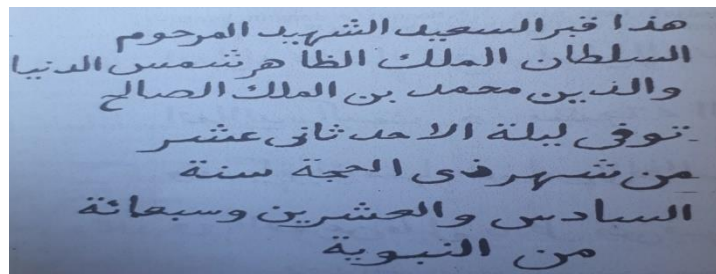 هذا قبر السعيد الشهيد المرحوم
السلطان الملك الظاهر شمس الدنيا
والدين محمد بن الملك الصالح
توفى ليلة الاحد ثانى عشر
من شهر ذى الحجة سنة
السادس والعشرين وسبعمائة
من النبوية